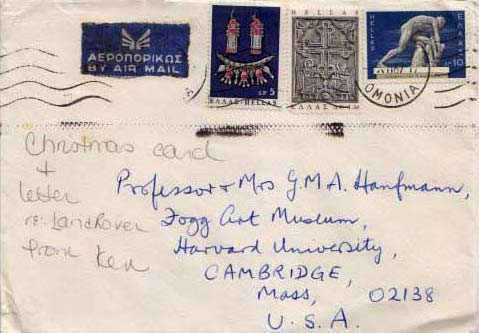 ΑΕΡΟΠΟΡΙΚΩΣ
BY AIR MAIL
ΔΡ. 5
ΕΛΛΑΣ-HELLAS
HELLAS
ΕΛΛΑΣ
HELLAS
ΕΛΛΑΣ
ΔΡ. 10
OMONIA
Christmas card
+
letter
re: LandRover
from Ken
Professor + Mrs G.M.A. Hanfmann,
Fogg Art Museum,
Harvard University,
CAMBRIDGE,
Mass, 02138
U. S. A.